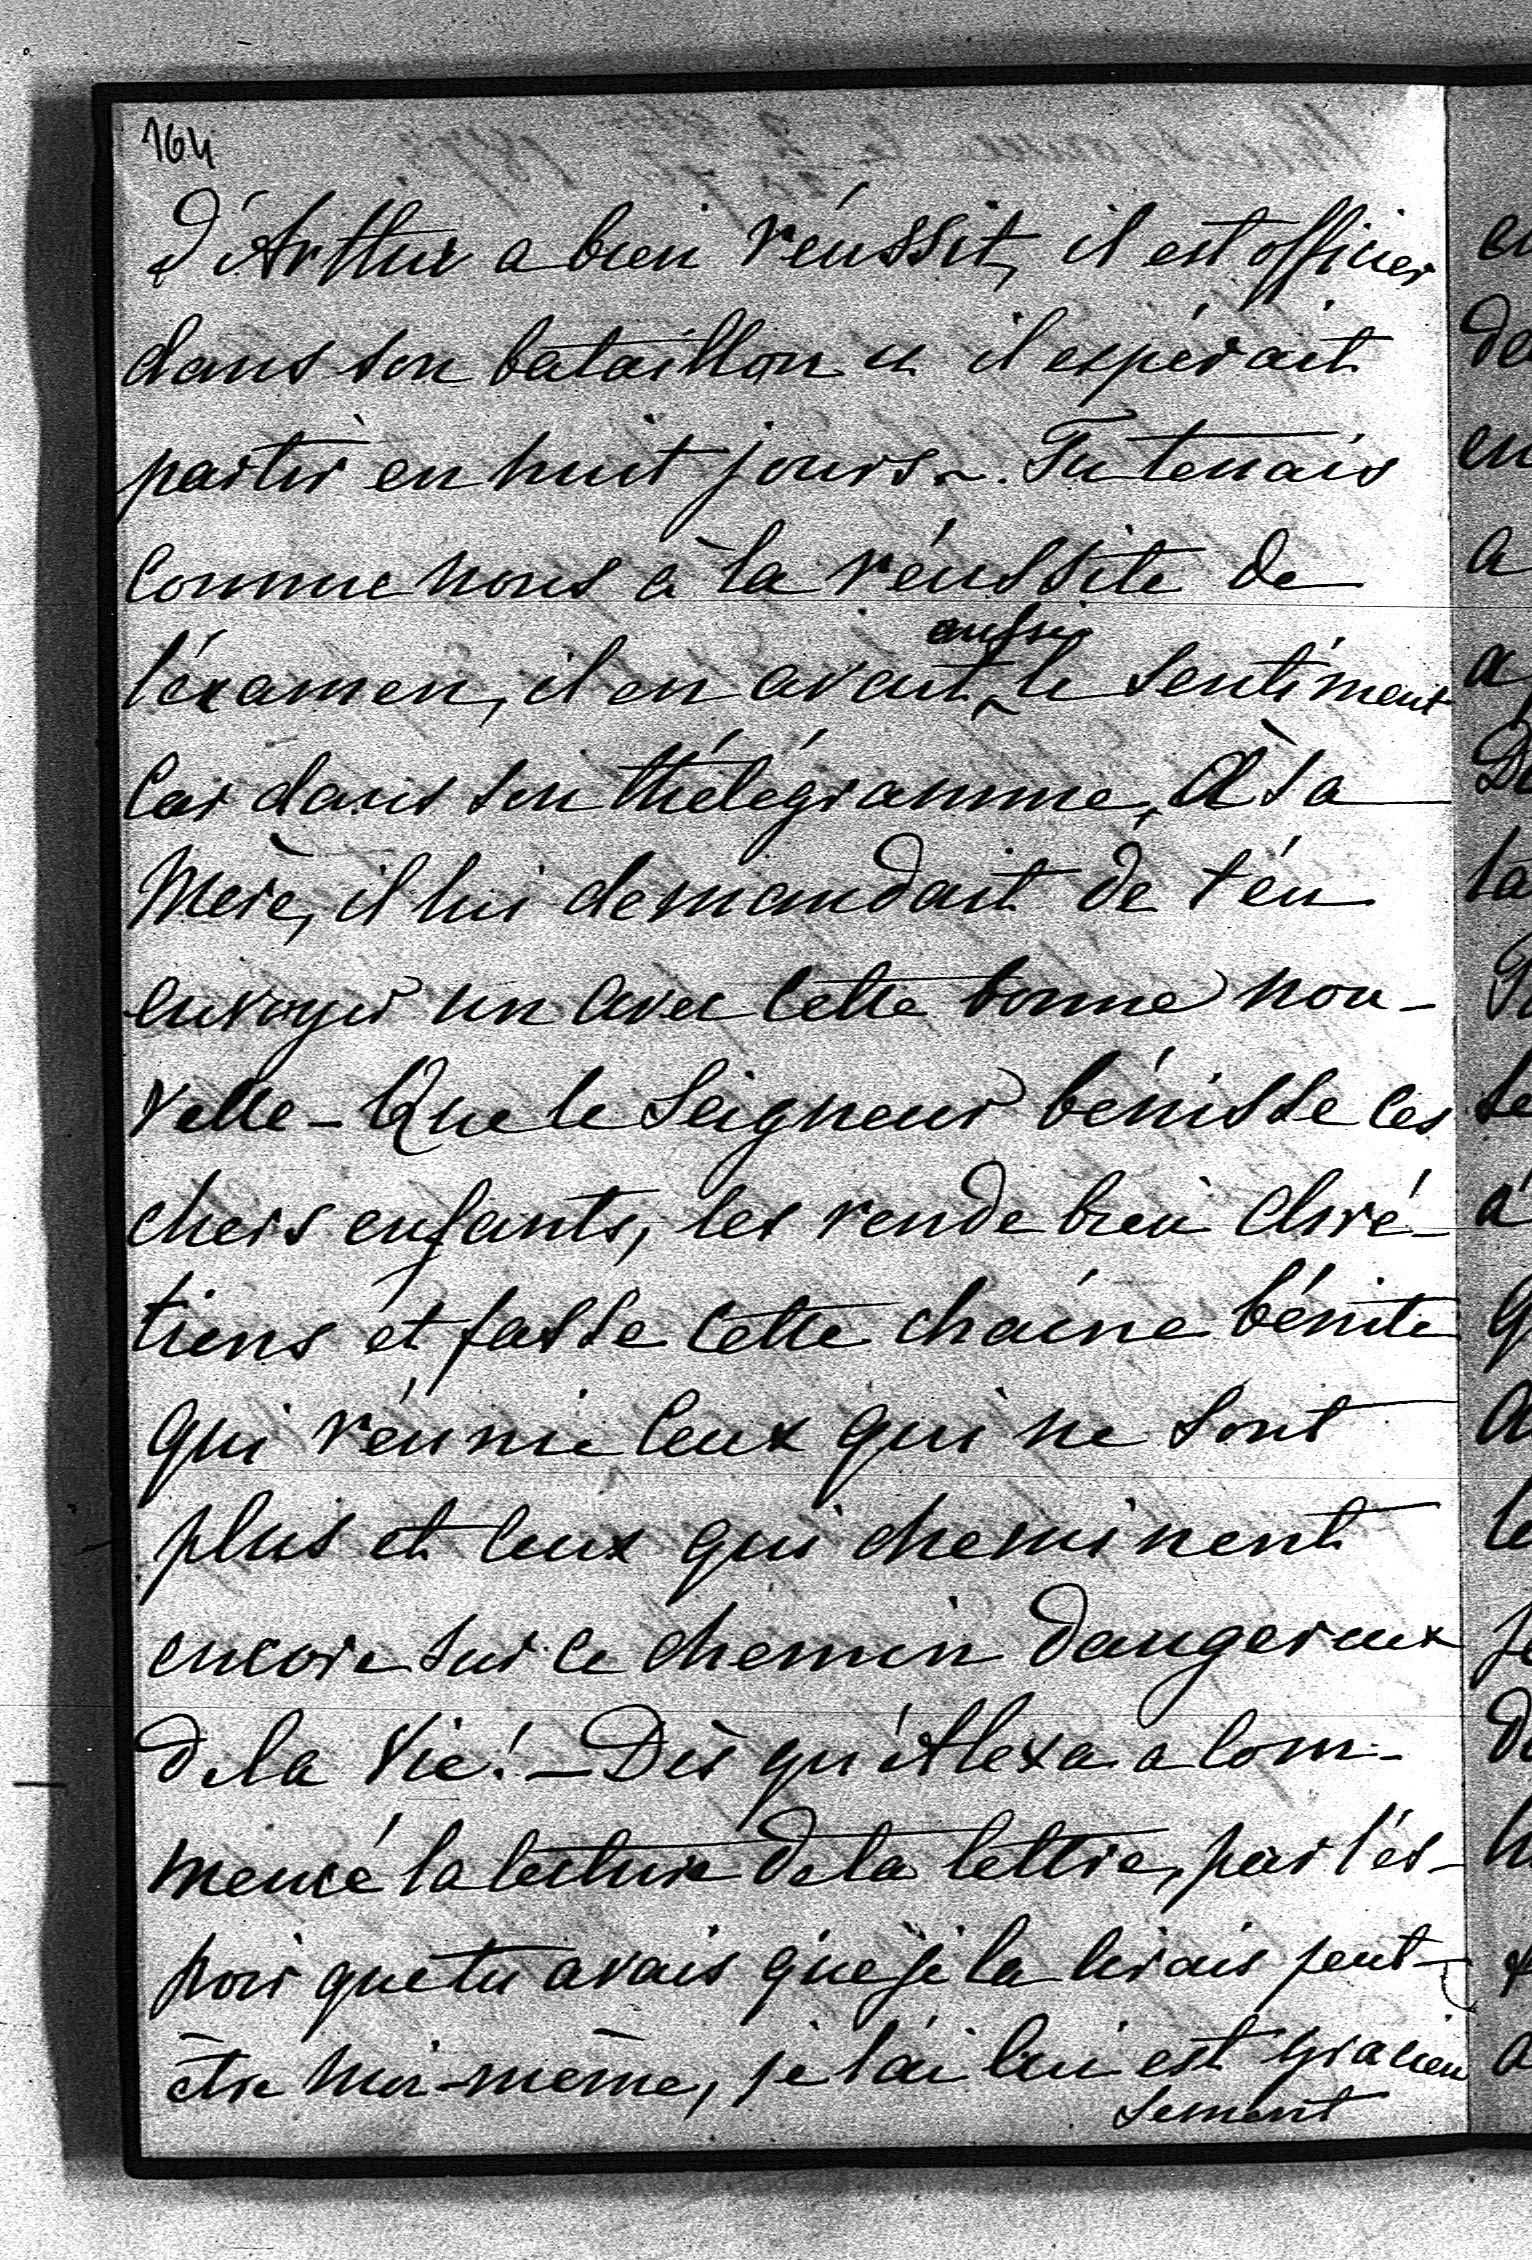 164
d'Arthur a bien réussit, il est officier
dans son bataillon et il espérait
partir en huit jours. Tu tenais
comme nous à la réussite de
l'éxamen, il en avait aussi le sentiment
car dans son thélégramme, à sa
Mère, il lui demandait de t'en
envoyer un avec cette bonne nou-
velle - Que le Seigneur bénisse ces
chers enfants, les rende bien chré-
tiens et fasse cette chaîne bénite
qui réunie ceux qui ne sont
plus et ceux qui cheminent
encore sur ce chemin dangereux
de la vie! - Dès qu'Alexa a com-
mencé la lecture de la lettre, par l'es-
poir que tu avais que je la lirais peut-
être moi-même, je l'ai lui est gracieu
sement